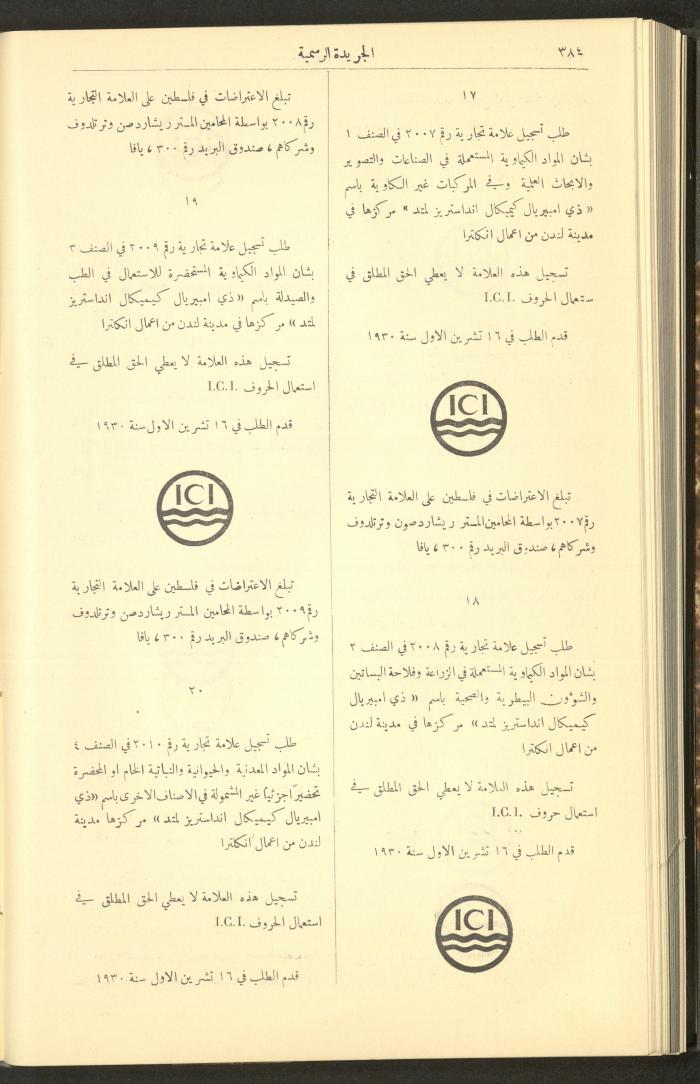 ٣٨٤
الجريدة الرسمية
١٧
طلب تسجيل علامة تجارية رقم ٢٠٠٧ في الصنف ١
بشان المواد الكيماوية المستعملة في الصناعات والتصوير
والابحاث العلمية وفي المركبات غير الكاوية باسم
« ذي امبيريال كيميكال انداستريز لمتد » مركزها في
مدينة لندن من اعمال انكلترا
تسجيل هذه العلامة لا يعطي الحق المطلق في
ستعمال الحروف I.C.I.
قدم الطلب في ١٦ تشرين الاول سنة ١٩٣٠
ICI
تبلغ الاعتراضات في فلسطين على العلامة التجارية
رقم ٢٠٠٧ بواسطة المحامين المستر ريشاردصون وترتلدوف
وشركاهم، صندوق البريد رقم ٣٠٠، يافا
١٨
طلب تسجيل علامة تجارية رقم ٢٠٠٨ في الصنف ٢
بشان المواد الكيماوية المستعملة في الزراعة وفلاحة البساتين
والشؤون البيطرية والصحية باسم « ذي امبيريال
كيميكال انداستريز لمتد» مركزها في مدينة لندن
من اعمال انكلترا
تسجيل هذه العلامة لا يعطي الحق المطلق في
استعمال حروف I.C.I.
قدم الطلب في ١٦ تشرين الاول سنة ١٩٣٠
ICI
تبلغ الاعتراضات في فلسطين على العلامة التجارية
رقم ٢٠٠٨ بواسطة المحامين المستر ريشاردصن وترتلدوف
وشركاهم، صندوق البريد رقم ٣٠٠، يافا
١٩
طلب تسجيل علامة تجارية رقم ٢٠٠٩ في الصنف ٣
بشان المواد الكيماوية المستحضرة للاستعمال في الطب
والصيدلة باسم «ذي امبيريال كيميكال انداستريز
لمتد» مركزها في مدينة لندن من اعمال انكلترا
تسجيل هذه العلامة لا يعطي الحق المطلق في
استعمال الحروف I.C.I.
قدم الطلب في ١٦ تشرين الاول سنة ١٩٣٠
ICI
تبلغ الاعتراضات في فلسطين على العلامة التجارية
رقم ٢٠٠٩ بواسطة المحامين المستر ريشاردصن وترتلدوف
وشركاهم، صندوق البريد رقم ٣٠٠، يافا
٢٠
طلب تسجيل علامة تجارية رقم ٢٠١٠ في الصنف ٤
بشان المواد المعدنية والحيوانية والنباتية الخام او المحضرة
تحضيراً جزئياً غير المشمولة في الاصناف الاخرى باسم «ذي
امبيريال كيميكال انداستريز لمتد» مركزها مدينة
لندن من اعمال انكلترا
تسجيل هذه العلامة لا يعطي الحق المطلق في
استعمال الحروف I.C.I.
قدم الطلب في ١٦ تشرين الاول سنة ١٩٣٠